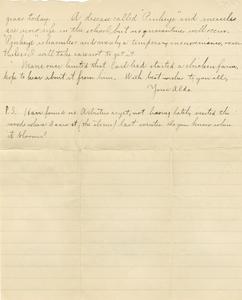 grass today. A disease called "Pinkeye" and measles
are now in the school, but no quarantine will occur.
Pinkeye is harmless and merely a temporary inconvenience, never
theless I will take care not to get it.
Mane once hinted that Carl had started a chicken farm,
hope to hear about it from him. With best wishes to you all,
Your Aldo.
P.S. I have found no Arbutus as yet, not having lately visited the
woods where I saw it, (the leaves) last winter. Do you know when
it blooms?